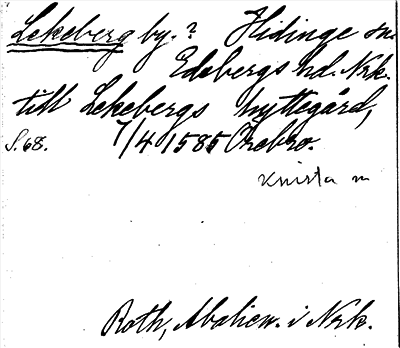 Lekeberg by.? Hidinge sn.
Edsbergs hd. Nrk.
till Lekebergs hyttegård,
S. 68. 7/4 1585 Örebro.
Knista sn
Roth, Abalien. i Nrk.